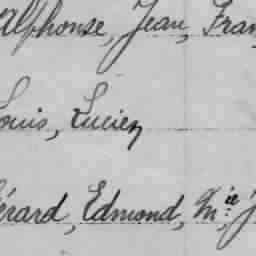 Alphonse, Jean, Fran
Louis, Lucien
Gérard, Edmond, M.ie J